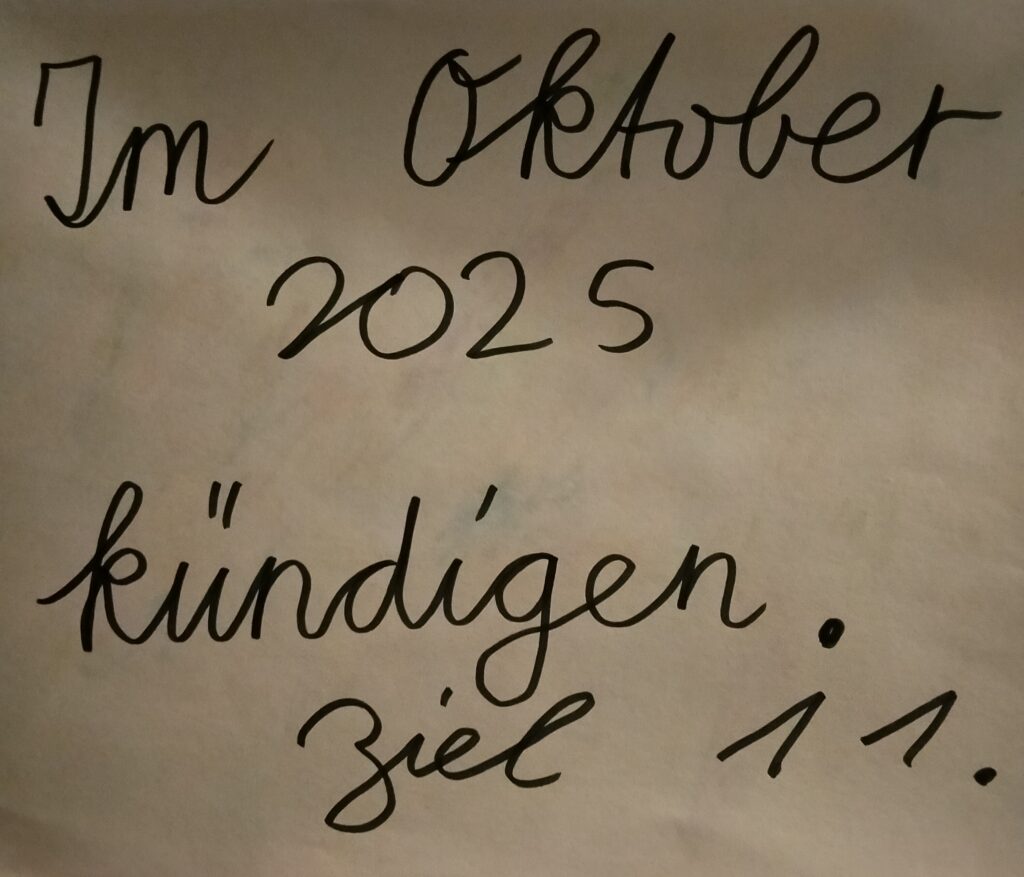 Im Oktober
2025
kündigen.
Ziel 11.